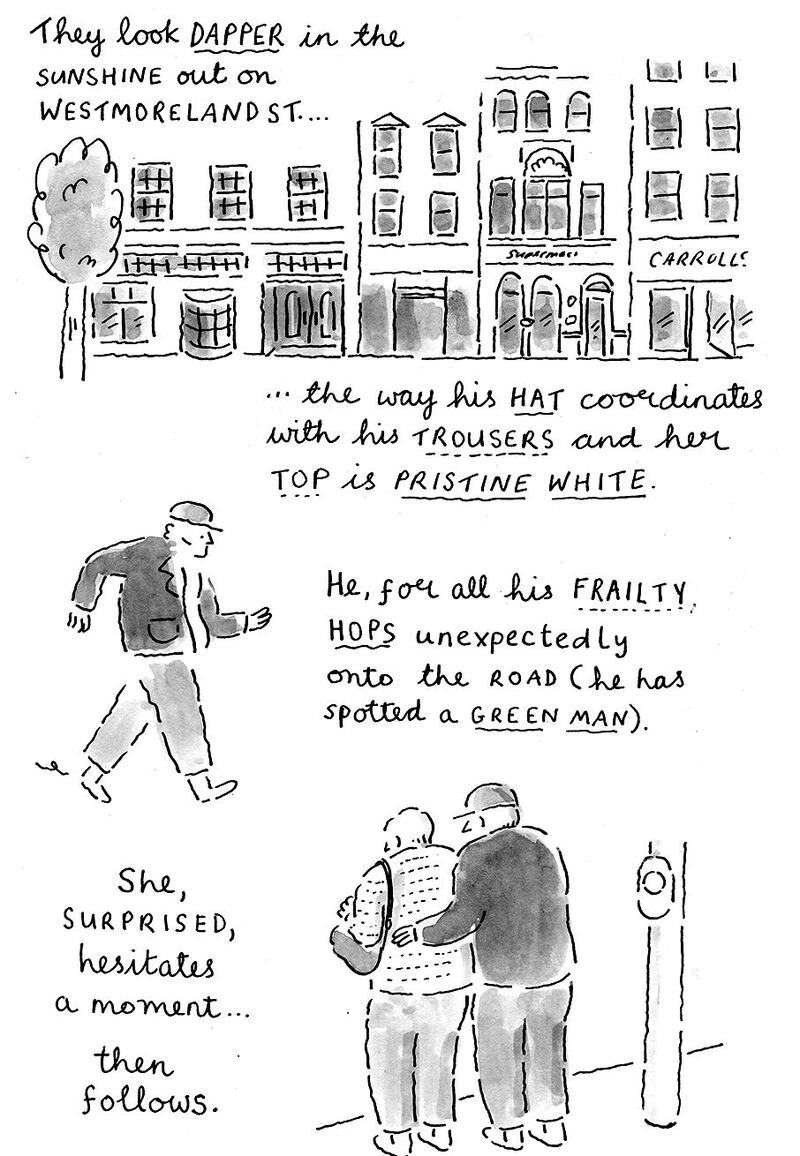 They look DAPPER in the
SUNSHINE out on
WESTMORELAND ST....
SUPREMACS
CARROLLS
... the way his HAT coordinates
with his TROUSERS and her
TOP is PRISTINE WHITE.
He, for all his FRAILTY,
HOPS unexpectedly
onto the ROAD (he has
spotted a GREEN MAN).
She,
SURPRISED,
hesitates
a moment...
then
follows.